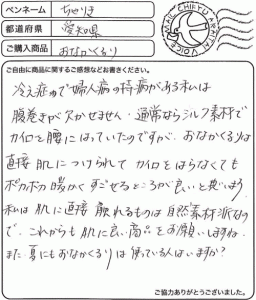 ペンネーム ちゃりき
都道府県 愛知県
ご購入商品 おなかくるり
MAIL CHIKYU ARATAI VOICE
ご自由に商品に関するご感想などお書きください。
冷え症ゆで婦人病の持病がある私は
腹巻きが欠かせません。通常ならシルク素材で
カイロを腰にはっていたのですが、おなかくるりは
直接肌につけられて カイロをはらなくても
ポカポカ暖かくすごせるところが良いと思います。
私は肌に直接触れるものは自然素材派なの
で、これからも肌に良い商品をお願いしますね。
また、夏にもおなかくるりは使っている人はいますか?
ご協力ありがとうございました。